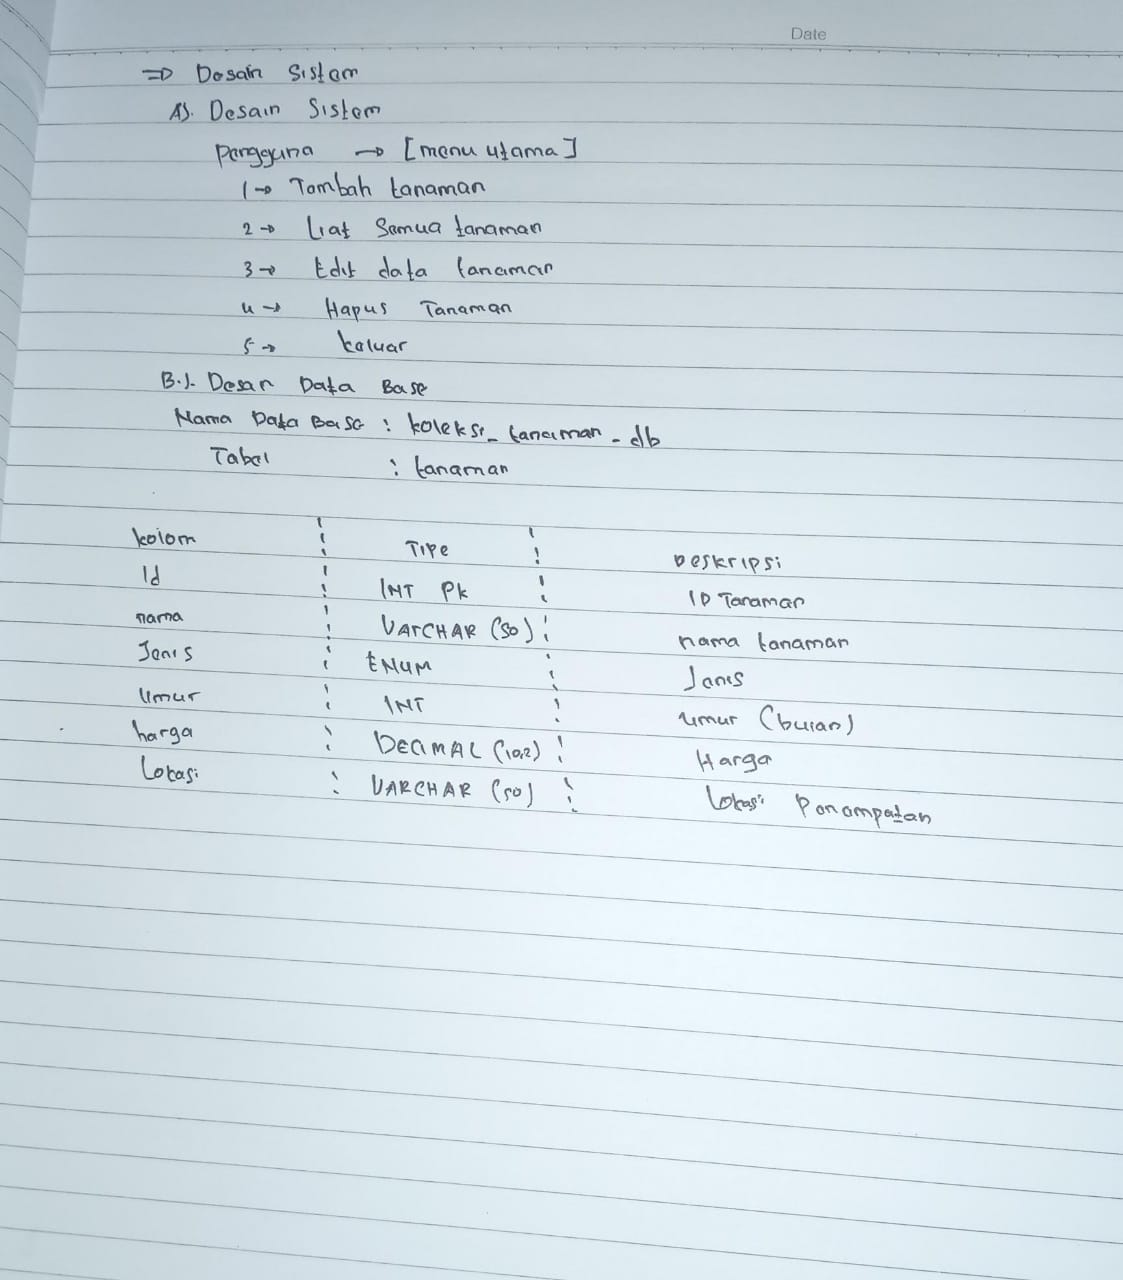 Date
=> Desain Sistem
A). Desain Sistem
Pengguna → [menu utama]
1 → Tambah tanaman
2 → Liat Semua tanaman
3 → Edit data tanaman
4 → Hapus Tanaman
5 → keluar
B.). Desan Data Base
Nama Data Base : koleksi_tanaman_db
Tabel : tanaman
kolom Tipe Deskripsi
Id INT PK ID Tanaman
nama VARCHAR (50) nama tanaman
Jenis ENUM Jenis
Umur INT umur (bulan)
harga DECIMAL (10,2) Harga
Lokasi VARCHAR (50) Lokasi Penempatan